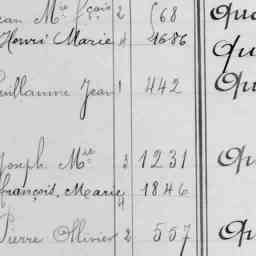 ean Mie fçois 2 568
Henri Marie 4 1686
Guillaume Jean 1 442
Joseph Mie 3 1231
françois. Marie 4 1846
Pierre Ollivier 2 557